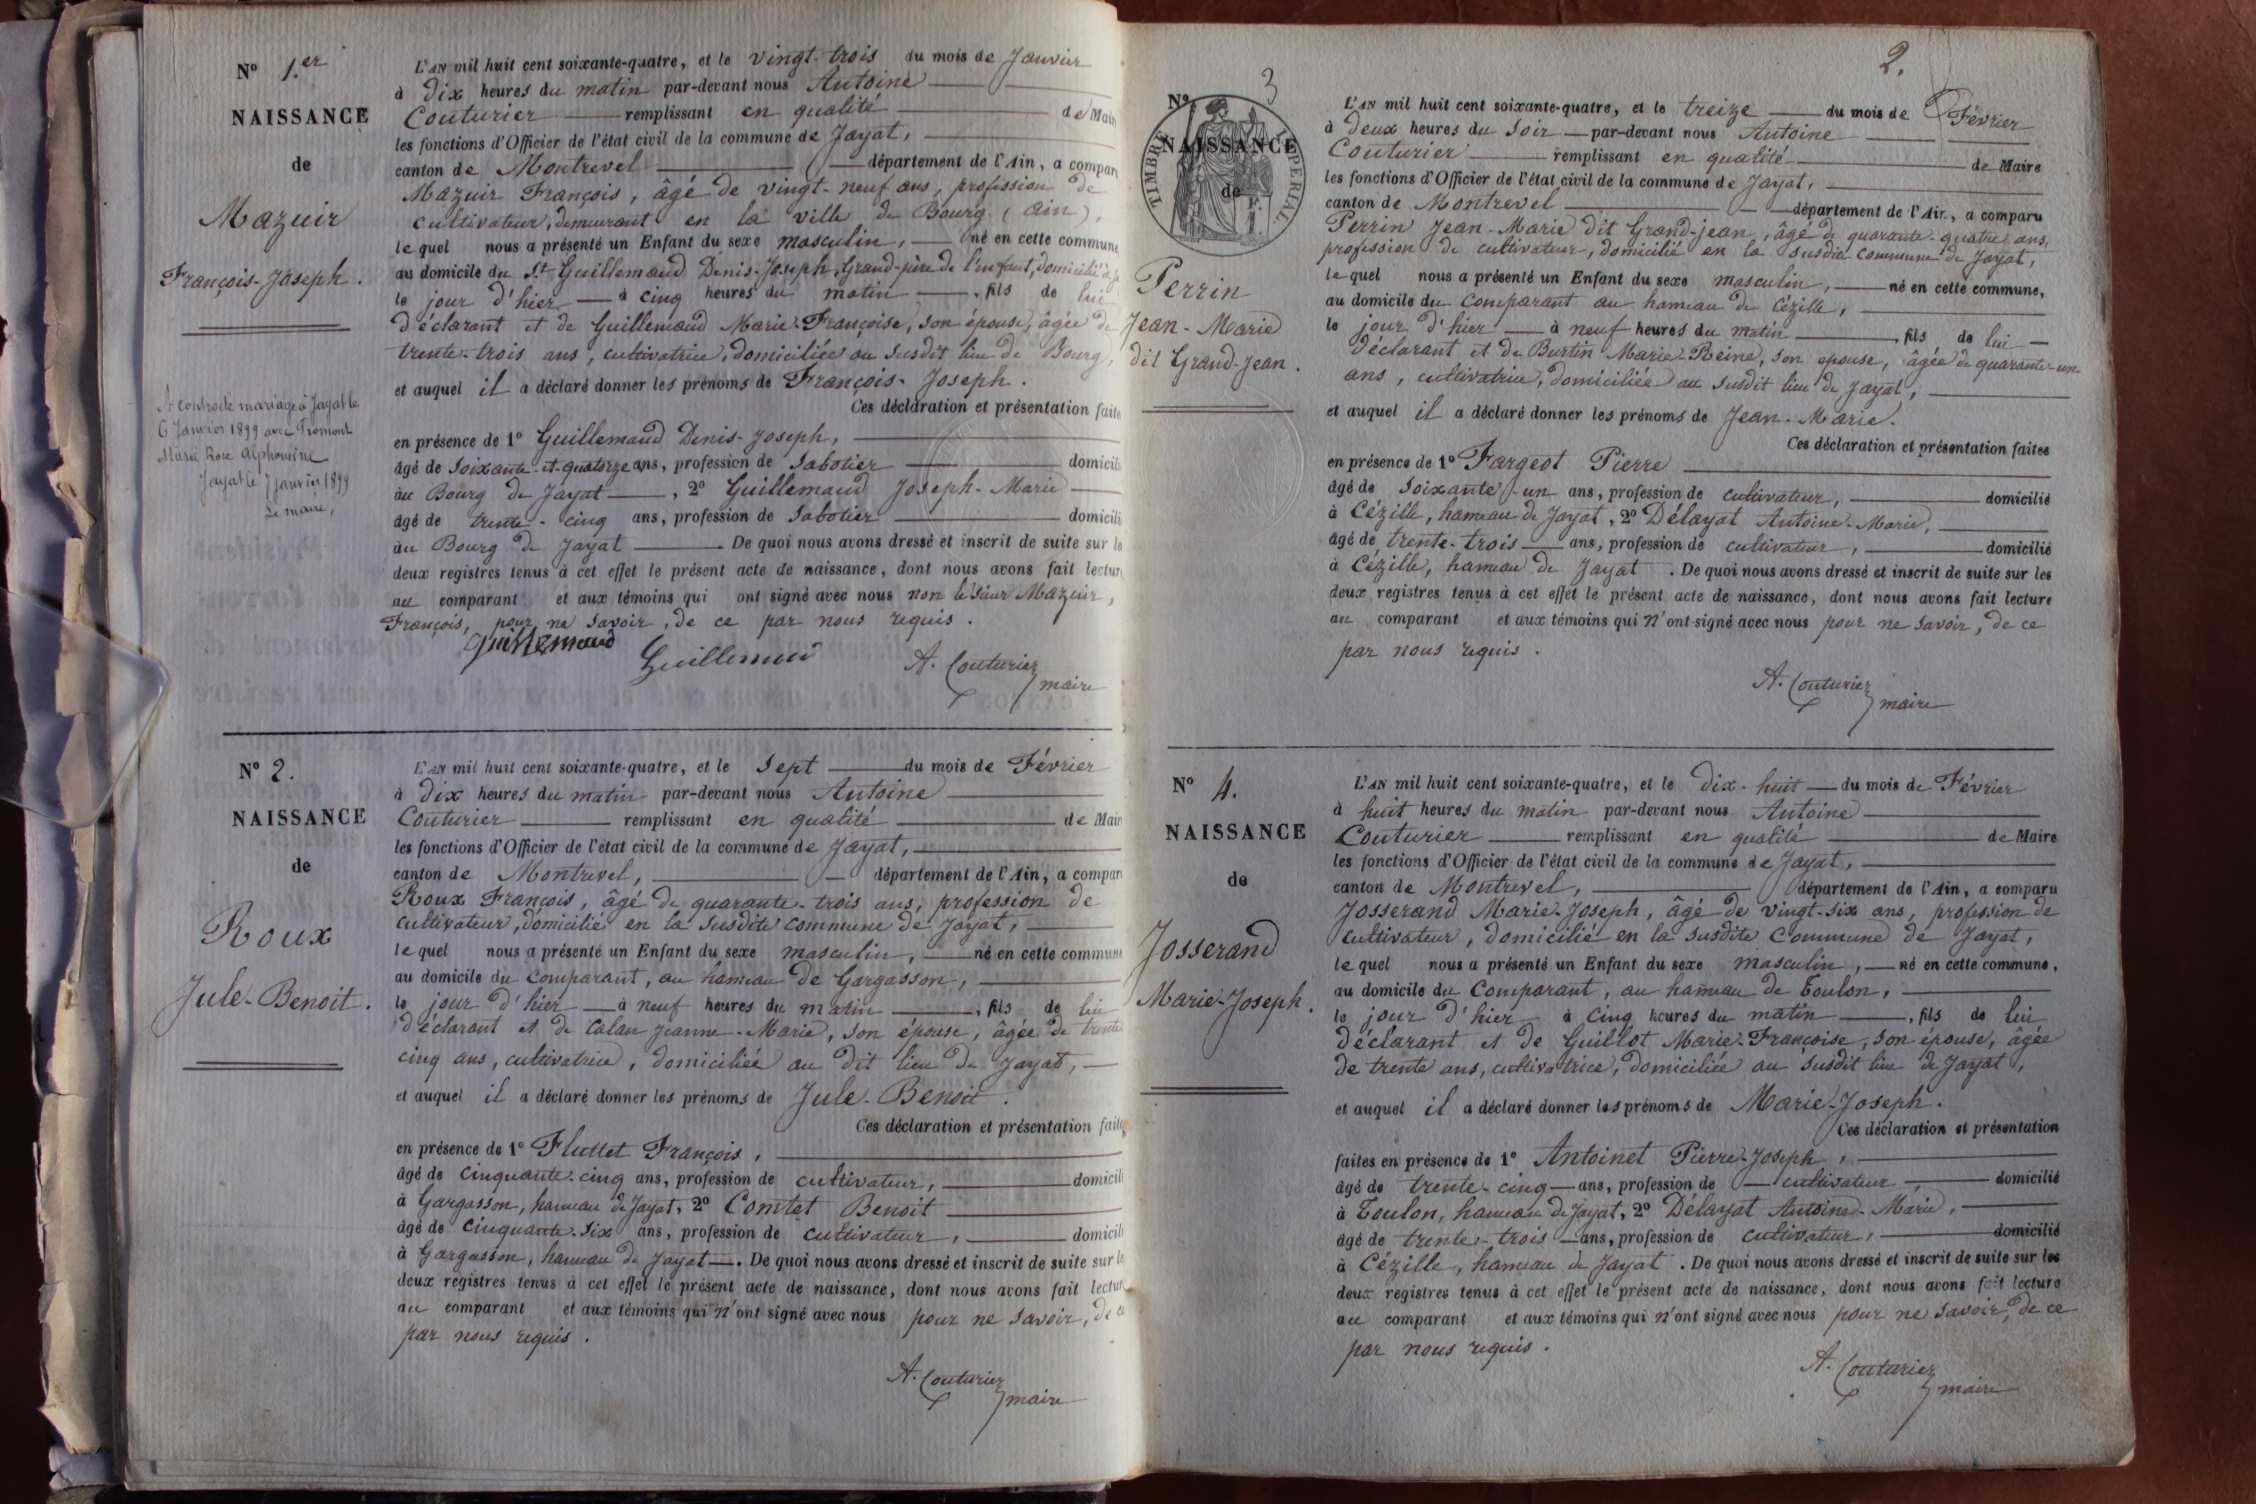 Nº 1.er
NAISSANCE
de
Mazuir
François-Joseph.
A contracté mariage à Jayat le
6 Janvier 1899 avec Fromont
Marie Rose Alphonsine
Jayat le 7 janvier 1899
Le maire,
L'AN mil huit cent soixante-quatre, et le vingt-trois du mois de Janvier
à dix heures du matin par-devant nous Antoine
Couturier remplissant en qualité de Mair
les fonctions d'Officier de l'état civil de la commune de Jayat,
canton de Montrevel département de l'Ain, a compar
Mazuir François, âgé de vingt-neuf ans, profession de
cultivateur, demeurant en la ville de Bourg (Ain),
lequel nous a présenté un Enfant du sexe masculin, né en cette commune
au domicile du St Guillemaud Denis-Joseph, Grand-père de l'enfant, domicilié à
le jour d'hier à cinq heures du matin, fils de lui
déclarant et de Guillemaud Marie-Françoise, son épouse, âgée de
trente-trois ans, cultivatrice, domiciliée au susdit lieu de Bourg,
et auquel il a déclaré donner les prénoms de François-Joseph.
Ces déclaration et présentation faite
en présence de 1º Guillemaud Denis-Joseph,
âgé de soixante-et-quatorze ans, profession de Sabotier domicili
au Bourg de Jayat, 2º Guillemaud Joseph-Marie
âgé de trente-cinq ans, profession de Sabotier domicili
au Bourg de Jayat. De quoi nous avons dressé et inscrit de suite sur le
deux registres tenus à cet effet le présent acte de naissance, dont nous avons fait lectur
au comparant et aux témoins qui ont signé avec nous non le sieur Mazuir,
François, pour ne savoir, de ce par nous requis.
Guillemaud Guillemaud A. Couturier
maire
Nº 2.
NAISSANCE
de
Roux
Jule-Benoit.
L'AN mil huit cent soixante-quatre, et le sept du mois de Février
à dix heures du matin par-devant nous Antoine
Couturier remplissant en qualité de Mair
les fonctions d'Officier de l'état civil de la commune de Jayat,
canton de Montrevel, département de l'Ain, a compar
Roux François, âgé de quarante-trois ans, profession de
cultivateur, domicilié en la susdite commune de Jayat,
lequel nous a présenté un Enfant du sexe masculin, né en cette commune
au domicile du comparant, au hameau de Gargasson,
le jour d'hier à neuf heures du matin, fils de lui
déclarant et de Calau Jeanne-Marie, son épouse, âgée de trente
cinq ans, cultivatrice, domiciliée au dit lieu de Jayat,
et auquel il a déclaré donner les prénoms de Jule-Benoit.
Ces déclaration et présentation faite
en présence de 1º Fluttet François,
âgé de cinquante-cinq ans, profession de cultivateur, domicili
à Gargasson, hameau de Jayat, 2º Comtet Benoit
âgé de cinquante-six ans, profession de cultivateur, domicili
à Gargasson, hameau de Jayat. De quoi nous avons dressé et inscrit de suite sur le
deux registres tenus à cet effet le présent acte de naissance, dont nous avons fait lectur
au comparant et aux témoins qui n'ont signé avec nous pour ne savoir, de ce
par nous requis.
A. Couturier
maire
2.
Nº 3
TIMBRE IMPERIAL
NAISSANCE
de
Perrin
Jean-Marie
dit Grand-Jean.
L'AN mil huit cent soixante-quatre, et le treize du mois de Février
à deux heures du soir par-devant nous Antoine
Couturier remplissant en qualité de Maire
les fonctions d'Officier de l'état civil de la commune de Jayat,
canton de Montrevel département de l'Ain, a comparu
Perrin Jean-Marie dit Grand-Jean, âgé de quarante-quatre ans,
profession de cultivateur, domicilié en la susdite commune de Jayat,
lequel nous a présenté un Enfant du sexe masculin, né en cette commune,
au domicile du comparant au hameau de Cézille,
le jour d'hier à neuf heures du matin, fils de lui
déclarant et de Burtin Marie-Reine, son épouse, âgée de quarante-un
ans, cultivatrice, domiciliée au susdit lieu de Jayat,
et auquel il a déclaré donner les prénoms de Jean-Marie.
Ces déclaration et présentation faites
en présence de 1º Fargeot Pierre
âgé de soixante-un ans, profession de cultivateur, domicilié
à Cézille, hameau de Jayat, 2º Délayat Antoine-Marie,
âgé de trente-trois ans, profession de cultivateur, domicilié
à Cézille, hameau de Jayat. De quoi nous avons dressé et inscrit de suite sur les
deux registres tenus à cet effet le présent acte de naissance, dont nous avons fait lecture
au comparant et aux témoins qui n'ont signé avec nous pour ne savoir, de ce
par nous requis.
A. Couturier
maire
Nº 4.
NAISSANCE
de
Josserand
Marie-Joseph.
L'AN mil huit cent soixante-quatre, et le dix-huit du mois de Février
à huit heures du matin par-devant nous Antoine
Couturier remplissant en qualité de Maire
les fonctions d'Officier de l'état civil de la commune de Jayat,
canton de Montrevel, département de l'Ain, a comparu
Josserand Marie-Joseph, âgé de vingt-six ans, profession de
cultivateur, domicilié en la susdite commune de Jayat,
lequel nous a présenté un Enfant du sexe masculin, né en cette commune,
au domicile du comparant, au hameau de Toulon,
le jour d'hier à cinq heures du matin, fils de lui
déclarant et de Guillot Marie-Françoise, son épouse, âgée
de trente ans, cultivatrice, domiciliée au susdit lieu de Jayat,
et auquel il a déclaré donner les prénoms de Marie-Joseph.
Ces déclaration et présentation
faites en présence de 1º Antoinet Pierre-Joseph,
âgé de trente-cinq ans, profession de cultivateur, domicilié
à Toulon, hameau de Jayat, 2º Délayat Antoine-Marie,
âgé de trente-trois ans, profession de cultivateur, domicilié
à Cézille, hameau de Jayat. De quoi nous avons dressé et inscrit de suite sur les
deux registres tenus à cet effet le présent acte de naissance, dont nous avons fait lecture
au comparant et aux témoins qui n'ont signé avec nous pour ne savoir, de ce
par nous requis.
A. Couturier
maire